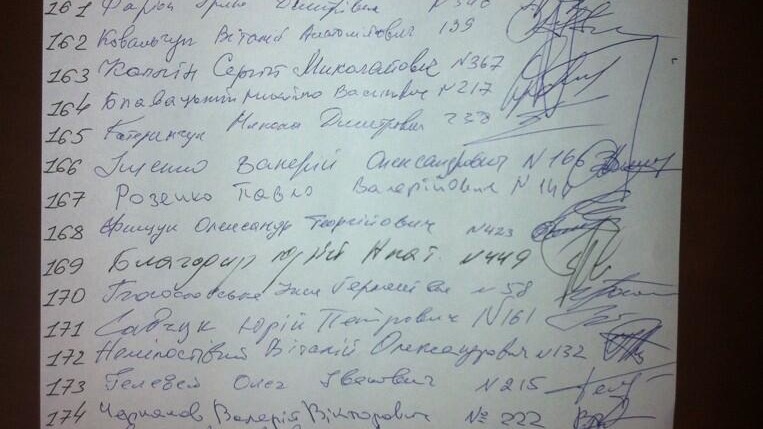 161 Фаріон Ірина Дмитрівна N 340
162 Ковальчук Віталій Анатолійович 139
163 Каплін Сергій Миколайович N367
164 Блавацький Михайло Васильович N217
165 Катеринчук Микола Дмитрович 238
166 Іщенко Валерій Олександрович N 166
167 Розенко Павло Валерійович N 140
168 Фищук Олександр Георгійович N423
169 Благодир Юрій Анат. N449
170 N 58
171 Савчук Юрій Петрович N161
172 Немілостівий Віталій Олександрович N132
173 Гелевей Олег Іванович N215
174 Валерій Вікторович № 222